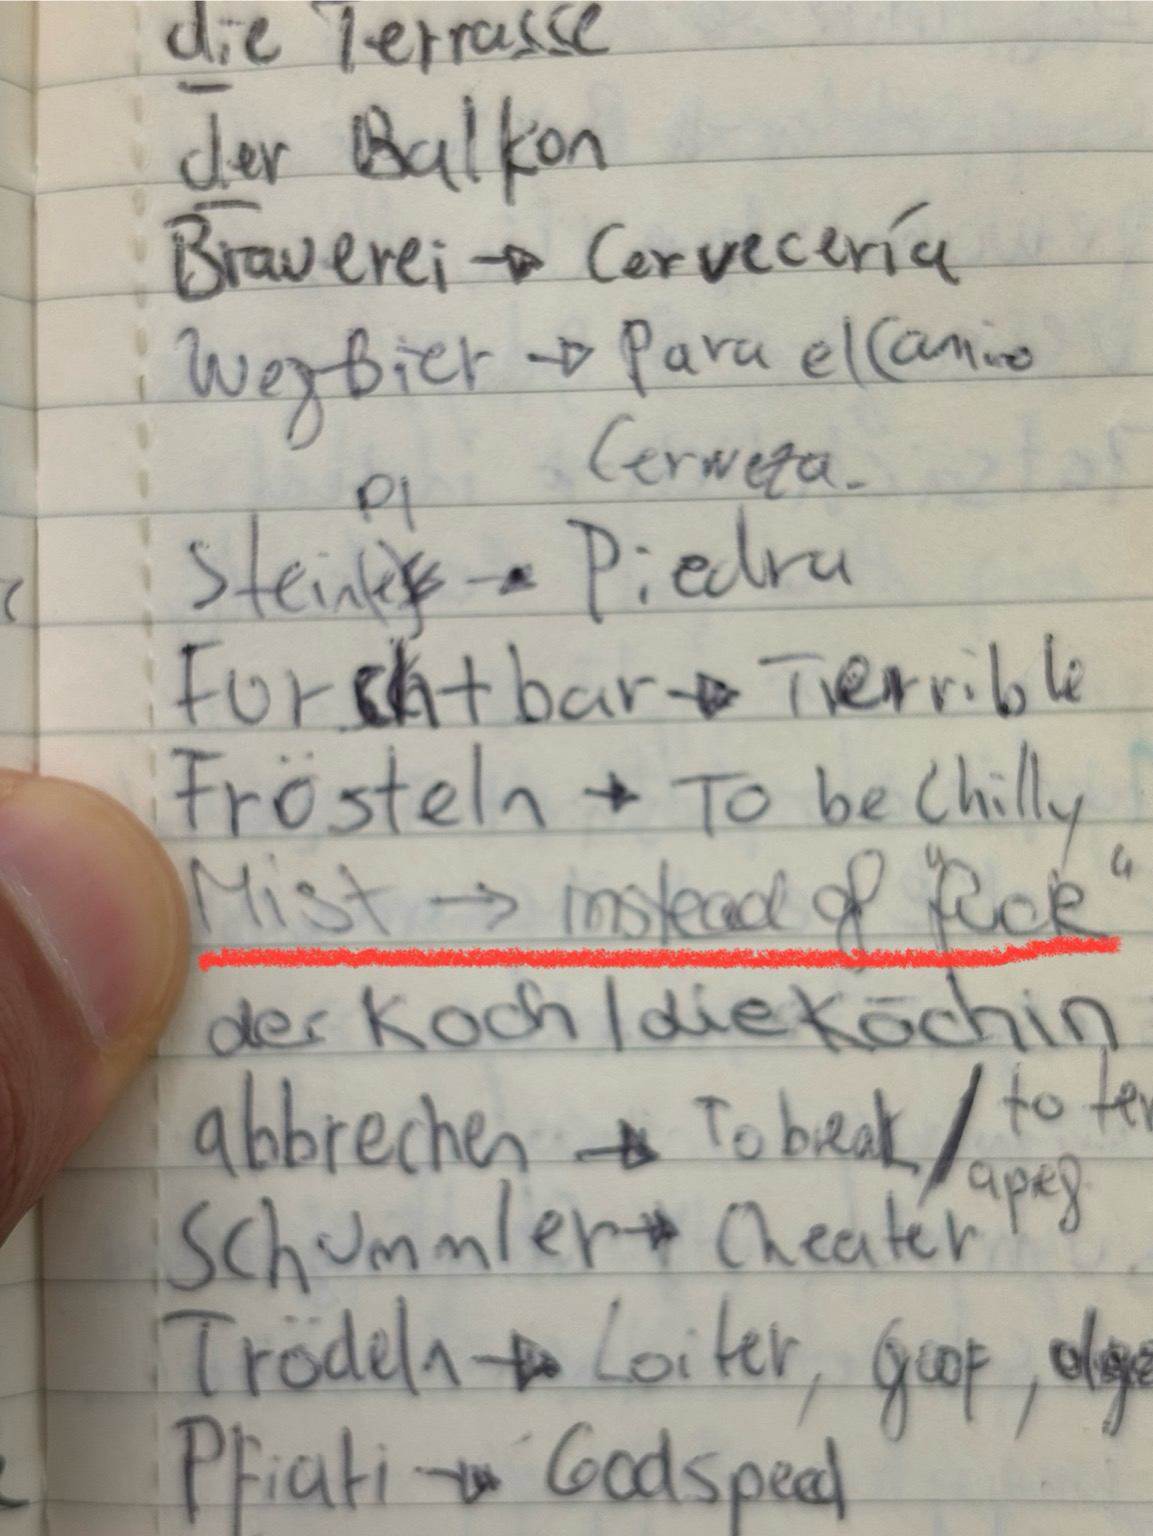 die Terrasse
der Balkon
Brauerei → Cervecería
Wegbier → Para el Camino
Cerveza.
Pl
Stein → Piedra
Furchtbar → Terrible
Frösteln → To be Chilly
Mist → instead of "fuck"
der Koch / die Köchin
abbrechen → To break / to ter
Schummler → Cheater
Trödeln → Loiter, goof,
Pfiati → Godspeed